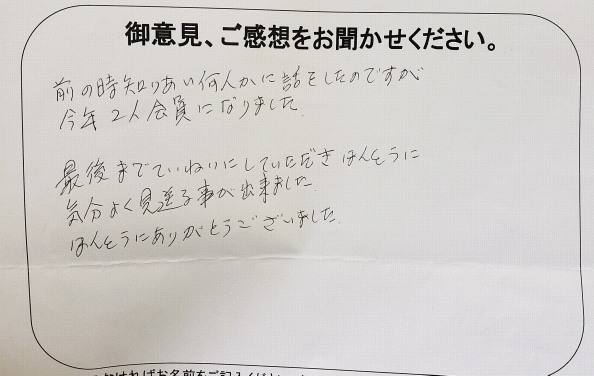 御意見、ご感想をお聞かせください。
前の時知りあい何人かに話をしたのですが
今年2人会員になりました。
最後までていねいにしていただきほんとうに
気分よく見送る事が出来ました。
ほんとうにありがとうございました。
ければお名前をご記入くだ